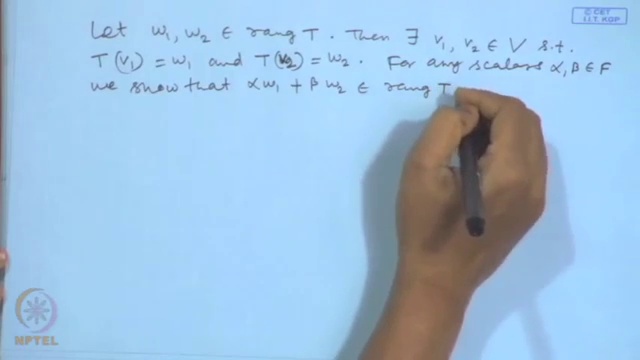 © CET
I.I.T. KGP
Let w₁, w₂ ∈ rang T. Then ∃ v₁, v₂ ∈ V s.t.
T(v₁) = w₁ and T(v₂) = w₂. For any scalars α, β ∈ F
we show that αw₁ + βw₂ ∈ rang T
NPTEL